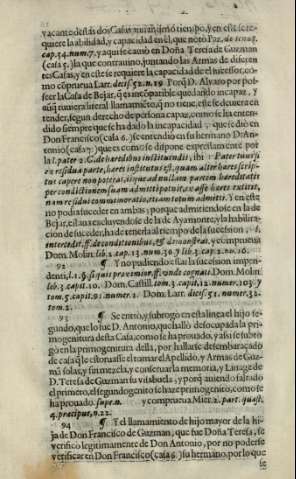 y acante destas dos Casas
quiere la abilidad, y capacidad en él, que notò Paz. de tenut.
cap.34. num.7. y aqui se causò en Doña Teresa de Guzman
(casa 5.) la que contraxo, juntando las Armas de diferentes
Casas, y en este se requiere la capacidad de el sucessor, como
comprueua Larr. decis. 52. n.19. D. Alvaro por
seer la Casa de Bejar, q̃ es incompatible quedando incapaz, y
aũq̃ tuuiera literal llamamiẽto, q̃ no tiene, este se deuiera en
tender, segun derecho de persona capaz, como se ha entendido
siempre que se ha dado la incapacidad que se diò en
Don Francisco (casa 6.) se entendio en su hermano D. Antonio
(casa 7.) que es como se dispone expressamente por
la l. pater 2. C. de haredibus instituendis, ibi: Pater tuus si
ex residua parte, hares institutus est, quam alter hares scriptus
capere non poterat, si quis ad nullam partem hareditatis
per conditionem suam admitti potuit, ex asse hares extitit,
nam residui commemoratio, etiam totum admittit. Y en este
no podia suceder en ambas; porque admitiendose en la de
Bejar, està ya excluyendose de la de Ayamonte, y la habilitacion
de suceder, ha de tenerla al tiempo de la sucession, l.
intercedit, ff. de conditionibus, & demonstrat. y compueua
Dom. Molin. lib. 2. cap. 13. num. 30. y lib. 3. cap. 2. n. 16.
92 ¶ Y no pudiendose dar la sucession impendenti,
l. 1. §. si quis proximior, ff. unde cognati, Dom. Molin.
lib. 3. cap. 10. num. Dom. Castill. tom. 3. cap. 12. num. 103. y
tom. 5. capit. 91. num. 2. Dom. Larr. decis. 51. numer. 32.
tom. 2.
93 ¶ Se entrò, y subrogò en esta linea el hijo segundo,
que lo fue D. Antonio, que hallò desocupada la primogenitura
desta Casa, como se ha prouado, y assi se subrogò
en la primogenitura della, por hallarse desembaraçado
de casa q̃ le estoruasse el tomar el Apellido, y Armas de Guzmã
solas, y sin mezcla, y conseruar la memoria, y Linage de
D. Teresa de Guzman su visabuela, y porq̃ auiendo faltado
el primero, el segundogenito se haze primogenito, como se
ha prouado. supr. n. y comprueua Mier. 2. part. quæst.
4. præcipue, n. 22.
94 ¶ Y el llamamiento de hijo mayor de la hija
de Don Francisco de Guzman, que fue Doña Teresa, se
verificò legitimamente de Don Antonio, por no poderse
verificar en Don Francisco (casa 6.) su hermano, por lo que
se